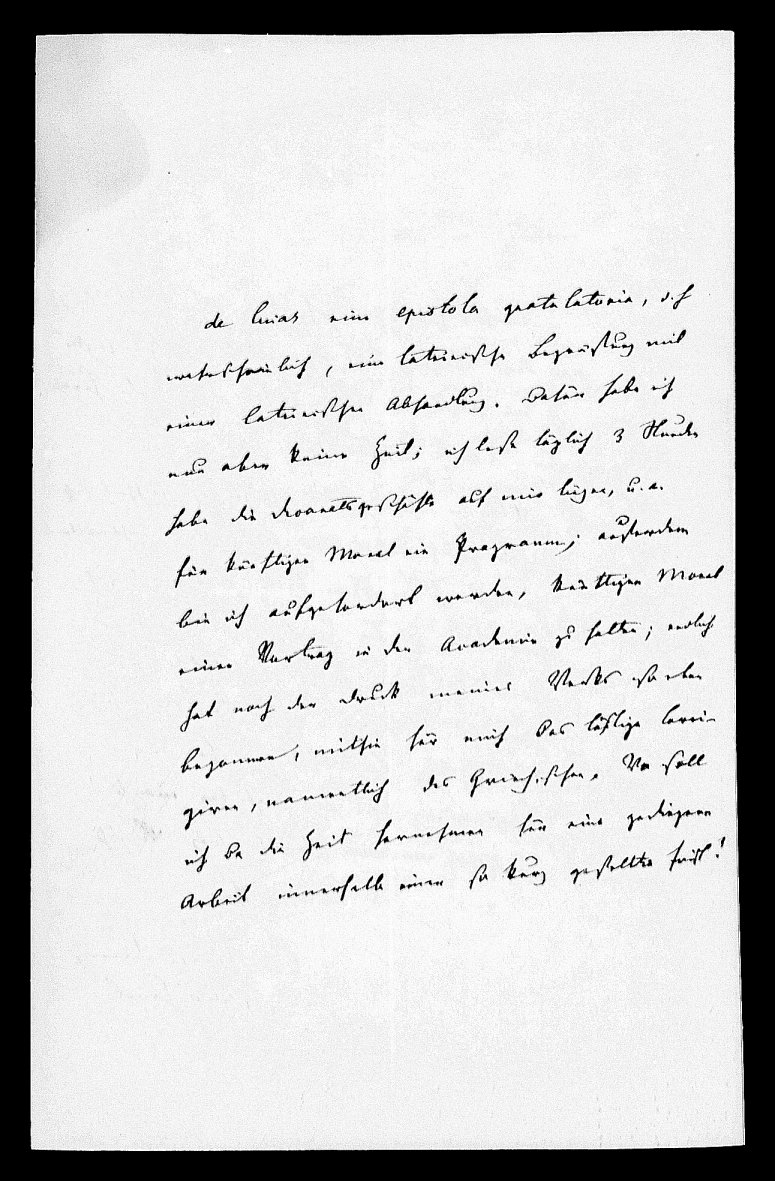 de eine epistola gratulatoria, d. h.
wahrscheinlich, eine lateinische Begrüßung mit
einer lateinischen Abhandlung. Dafür habe ich
nun aber keine Zeit; ich lese täglich 3 Stunden
habe die Decanatsgeschäfte auf mir liegen, u. a.
für künftigen Monat ein Programm; außerdem
bin ich aufgefordert worden, künftigen Monat
einen Vortrag in der Academie zu halten; endlich
hat noch der Druck meines Werks so eben
begonnen, mithin für mich das lästige Corri-
giren, namentlich des Griechischen. Wo soll
ich da die Zeit hernehmen für eine gediegene
Arbeit innerhalb einer so kurz gestellten Frist!